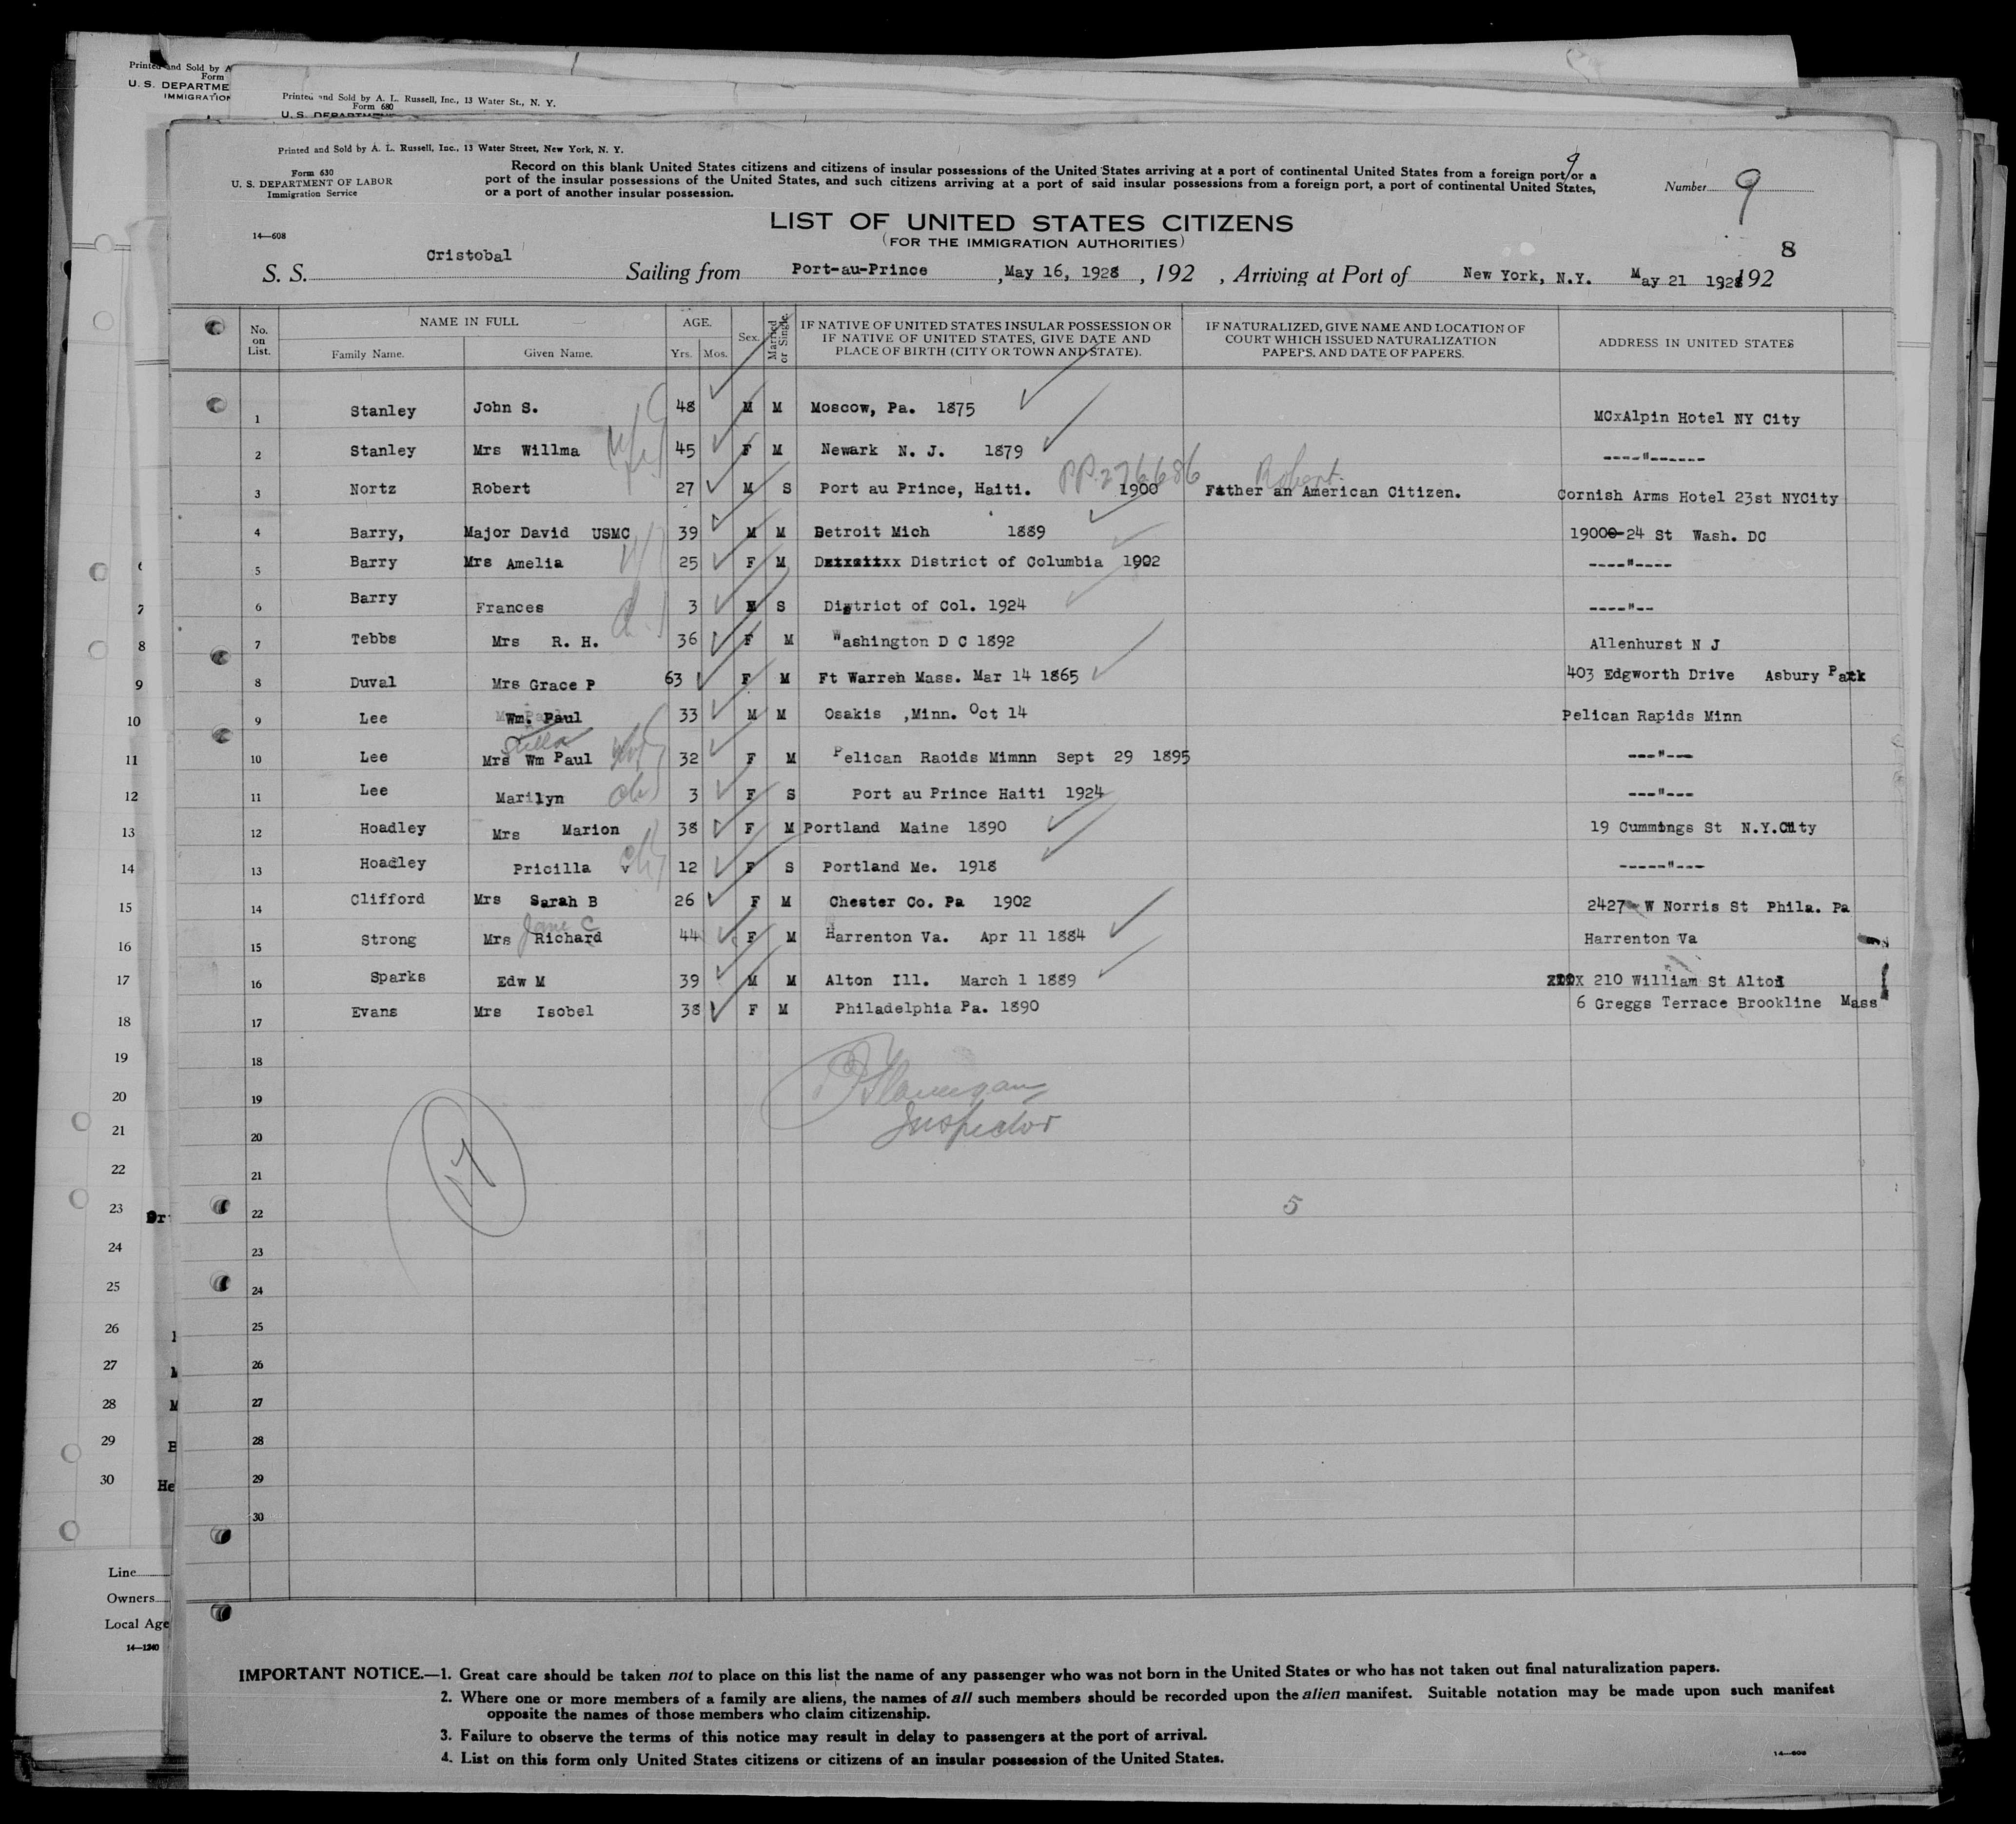 Printed and Sold by A
Form
U. S. DEPARTME
IMMIGRATION
Printed and Sold by A. L. Russell, Inc., 13 Water St., N. Y.
Form 680
U. S. DEPARTMEN
Printed and Sold by A. L. Russell, Inc., 13 Water Street, New York, N. Y.
Form 630
U. S. DEPARTMENT OF LABOR
Immigration Service
14—608
Record on this blank United States citizens and citizens of insular possessions of the United States arriving at a port of continental United States from a foreign port or a
port of the insular possessions of the United States, and such citizens arriving at a port of said insular possessions from a foreign port, a port of continental United States,
or a port of another insular possession.
9
Number 9
LIST OF UNITED STATES CITIZENS
(FOR THE IMMIGRATION AUTHORITIES)
8
S. S. Cristobal Sailing from Port-au-Prince , May 16, 1928 , 192 , Arriving at Port of New York, N.Y. May 21 1928 192
No. on List. NAME IN FULL Family Name. Given Name. AGE. Yrs. Mos. Sex. Married or Single. IF NATIVE OF UNITED STATES INSULAR POSSESSION OR IF NATIVE OF UNITED STATES, GIVE DATE AND PLACE OF BIRTH (CITY OR TOWN AND STATE). IF NATURALIZED, GIVE NAME AND LOCATION OF COURT WHICH ISSUED NATURALIZATION PAPERS, AND DATE OF PAPERS. ADDRESS IN UNITED STATES
1 Stanley John S. 48 M M Moscow, Pa. 1875 MCxAlpin Hotel NY City
2 Stanley Mrs Willma 45 F M Newark N. J. 1879 ----"------
PP.276686 Robert
3 Nortz Robert 27 M S Port au Prince, Haiti. 1900 Father an American Citizen. Cornish Arms Hotel 23st NYCity
4 Barry, Major David USMC 39 M M Detroit Mich 1889 19000-24 St Wash. DC
5 Barry Mrs Amelia 25 F M Dxtxsitxx District of Columbia 1902 ----"----
6 Barry Frances 3 S District of Col. 1924 ----"--
7 Tebbs Mrs R. H. 36 F M Washington D C 1892 Allenhurst N J
8 Duval Mrs Grace P 63 F M Ft Warren Mass. Mar 14 1865 403 Edgworth Drive Asbury Park
9 Lee Wm. Paul 33 M M Osakis ,Minn. Oct 14 Pelican Rapids Minn
Stella
10 Lee Mrs Wm Paul 32 F M Pelican Raoids Mimnn Sept 29 1895 ---"---
11 Lee Marilyn 3 F S Port au Prince Haiti 1924 ---"---
12 Hoadley Mrs Marion 38 F M Portland Maine 1890 19 Cummings St N.Y.City
13 Hoadley Pricilla v 12 F S Portland Me. 1918 -----"---
14 Clifford Mrs Sarah B 26 F M Chester Co. Pa 1902 2427 W Norris St Phila. Pa
Jane C
15 Strong Mrs Richard 44 F M Harrenton Va. Apr 11 1884 Harrenton Va
16 Sparks Edw M 39 M M Alton Ill. March 1 1889 210 William St Alton
17 Evans Mrs Isobel 38 F M Philadelphia Pa. 1890 6 Greggs Terrace Brookline Mass
18
19
20
21
22
23
24
25
26
27
28
29
30
Flannigan
Inspector
17
5
6
7
8
9
10
11
12
13
14
15
16
17
18
19
20
21
22
23
24
25
26
27
28
29
30
Dr
M
B
He
Line
Owners
Local Age
14—1240
IMPORTANT NOTICE.—1. Great care should be taken not to place on this list the name of any passenger who was not born in the United States or who has not taken out final naturalization papers.
2. Where one or more members of a family are aliens, the names of all such members should be recorded upon the alien manifest. Suitable notation may be made upon such manifest
opposite the names of those members who claim citizenship.
3. Failure to observe the terms of this notice may result in delay to passengers at the port of arrival.
4. List on this form only United States citizens or citizens of an insular possession of the United States.
14—608